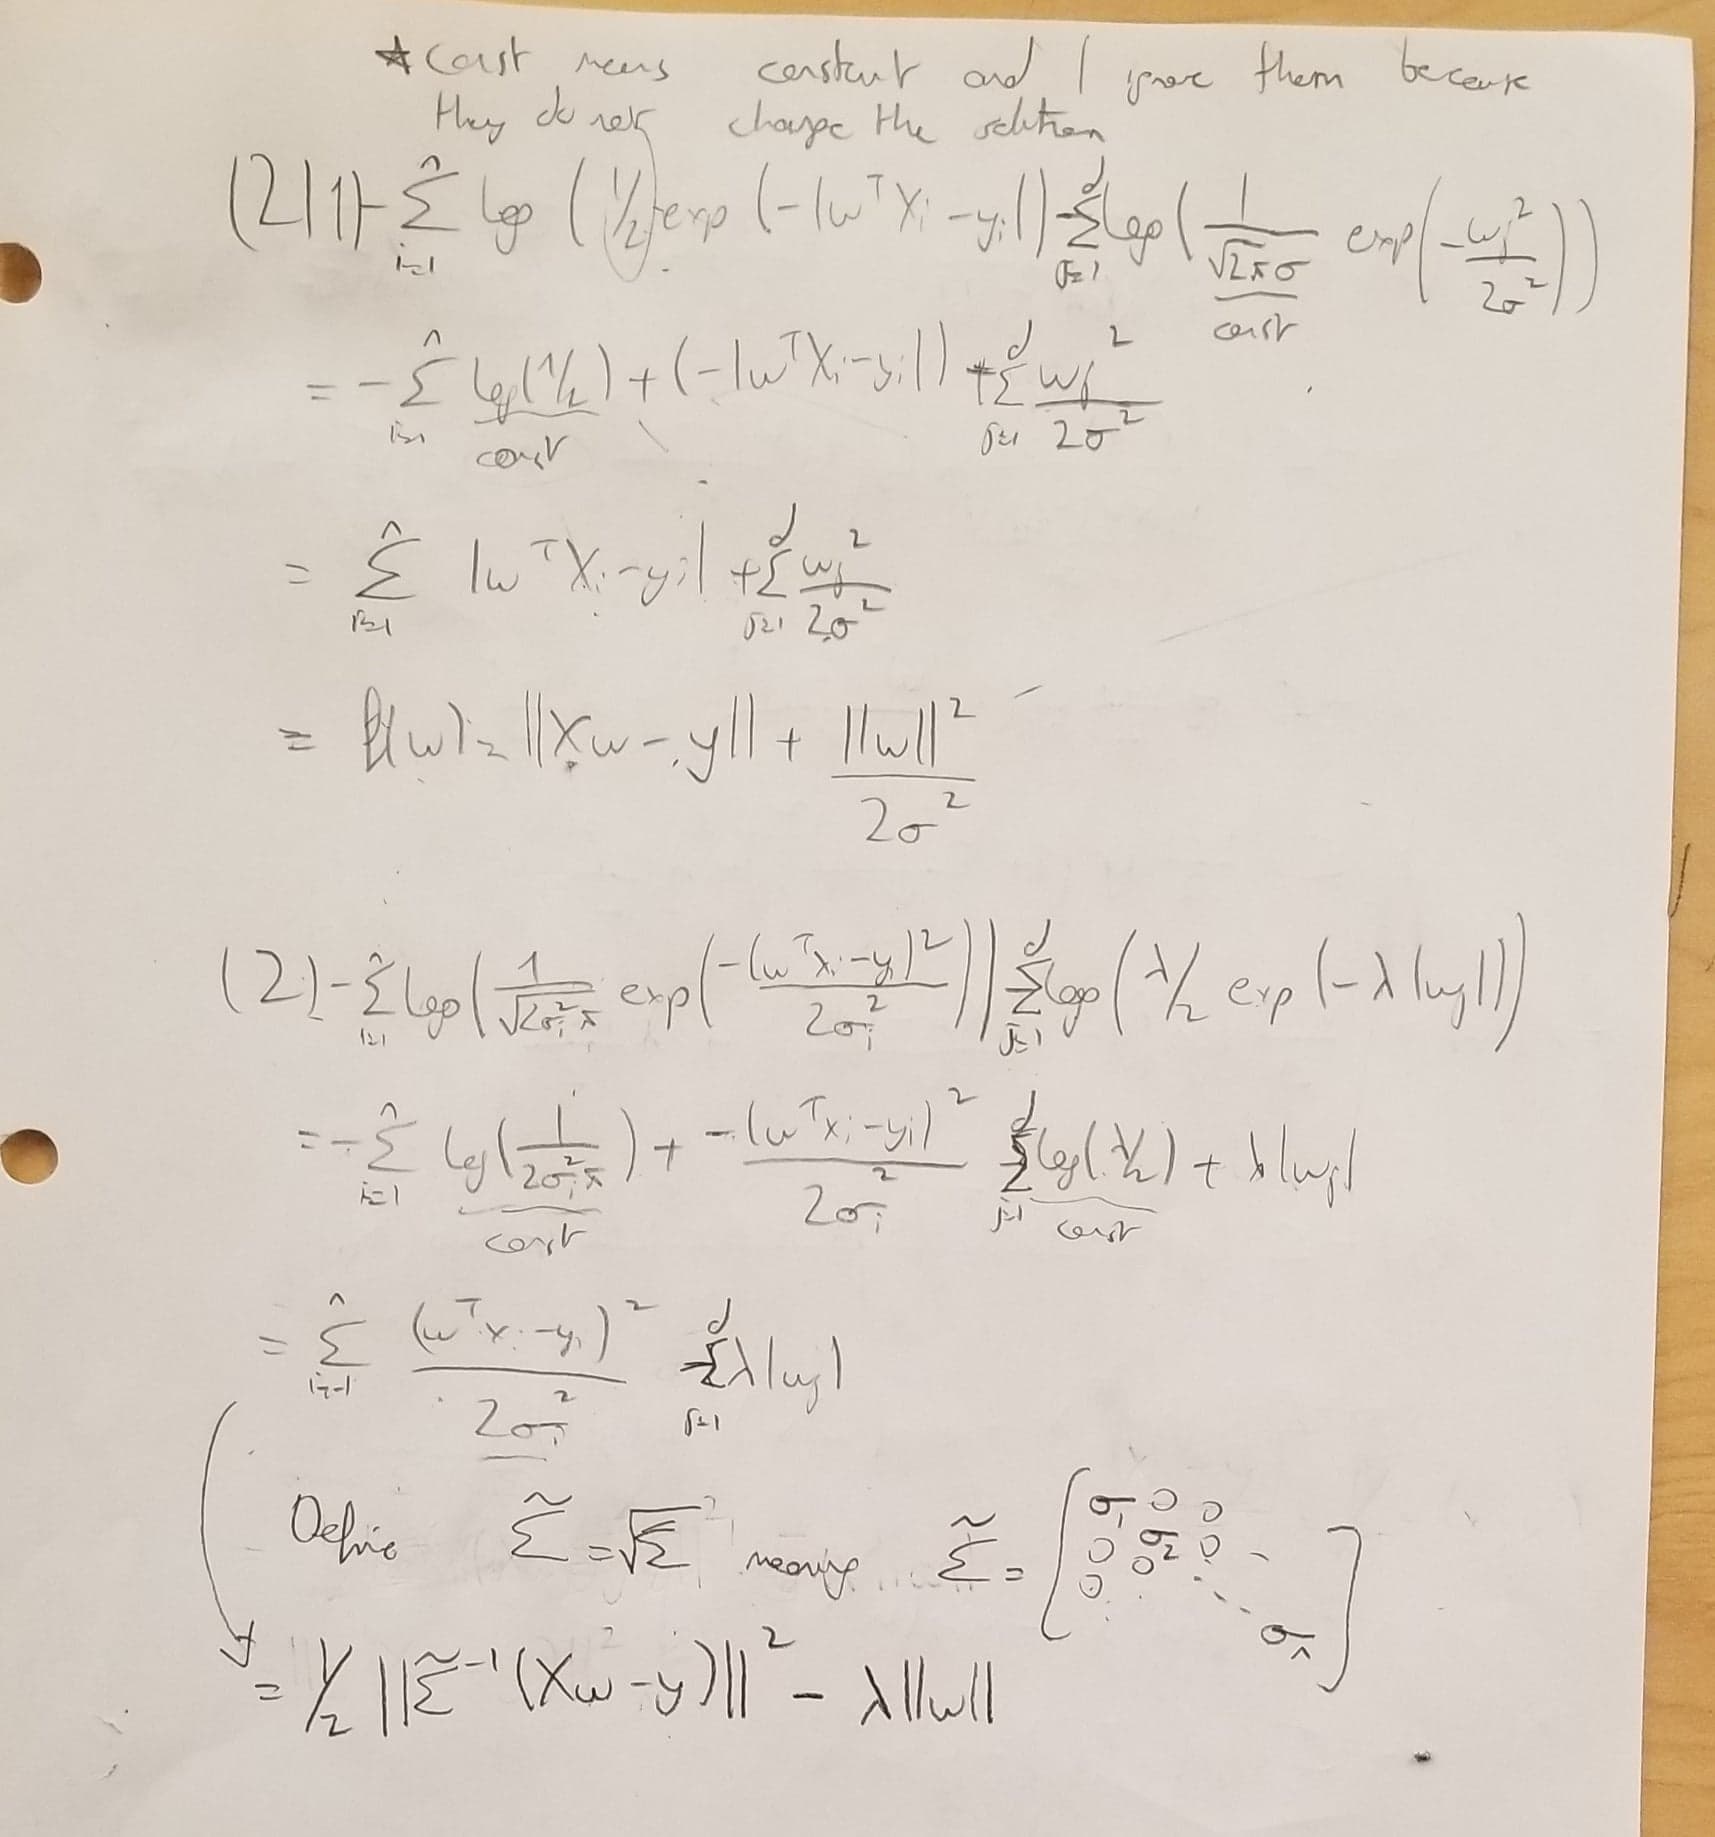 ★ const means constant and I ignore them because
they do not change the solution
(2)1) -Σ_{i=1}^n log (1/2 exp (-|w^T X_i - y_i|) - Σ_{j=1}^d log ( 1/(√2π σ) exp(-w_j^2/2σ^2))
const
= -Σ_{i=1}^n log(1/2) + (-|w^T X_i - y_i|) + Σ_{j=1}^d w_j^2/2σ^2
const
= Σ_{i=1}^n |w^T X_i - y_i| + Σ_{j=1}^d w_j^2/2σ^2
= f(w) = ||Xw - y|| + ||w||^2/2σ^2
(2) -Σ_{i=1}^n log( 1/√(2σ_i^2 π) exp( -(w^T x_i - y_i)^2/2σ_i^2 )) Σ_{j=1}^d log(λ/2 exp(-λ|w_j|))
= -Σ_{i=1}^n log( 1/(2σ_i^2 π) ) + -(w^T x_i - y_i)^2/2σ_i^2 Σ_{j=1}^d log(λ/2) + λ|w_j|
const const
= Σ_{i=1}^n (w^T x_i - y_i)^2/2σ_i^2 - Σ_{j=1}^d λ|w_j|
Define Σ̃ = √Σ meaning Σ̃ = [ σ_1 0 0
0 σ_2 0
0 0 ⋱
σ_n ]
= 1/2 ||Σ̃^{-1} (Xw - y)||^2 - λ||w||